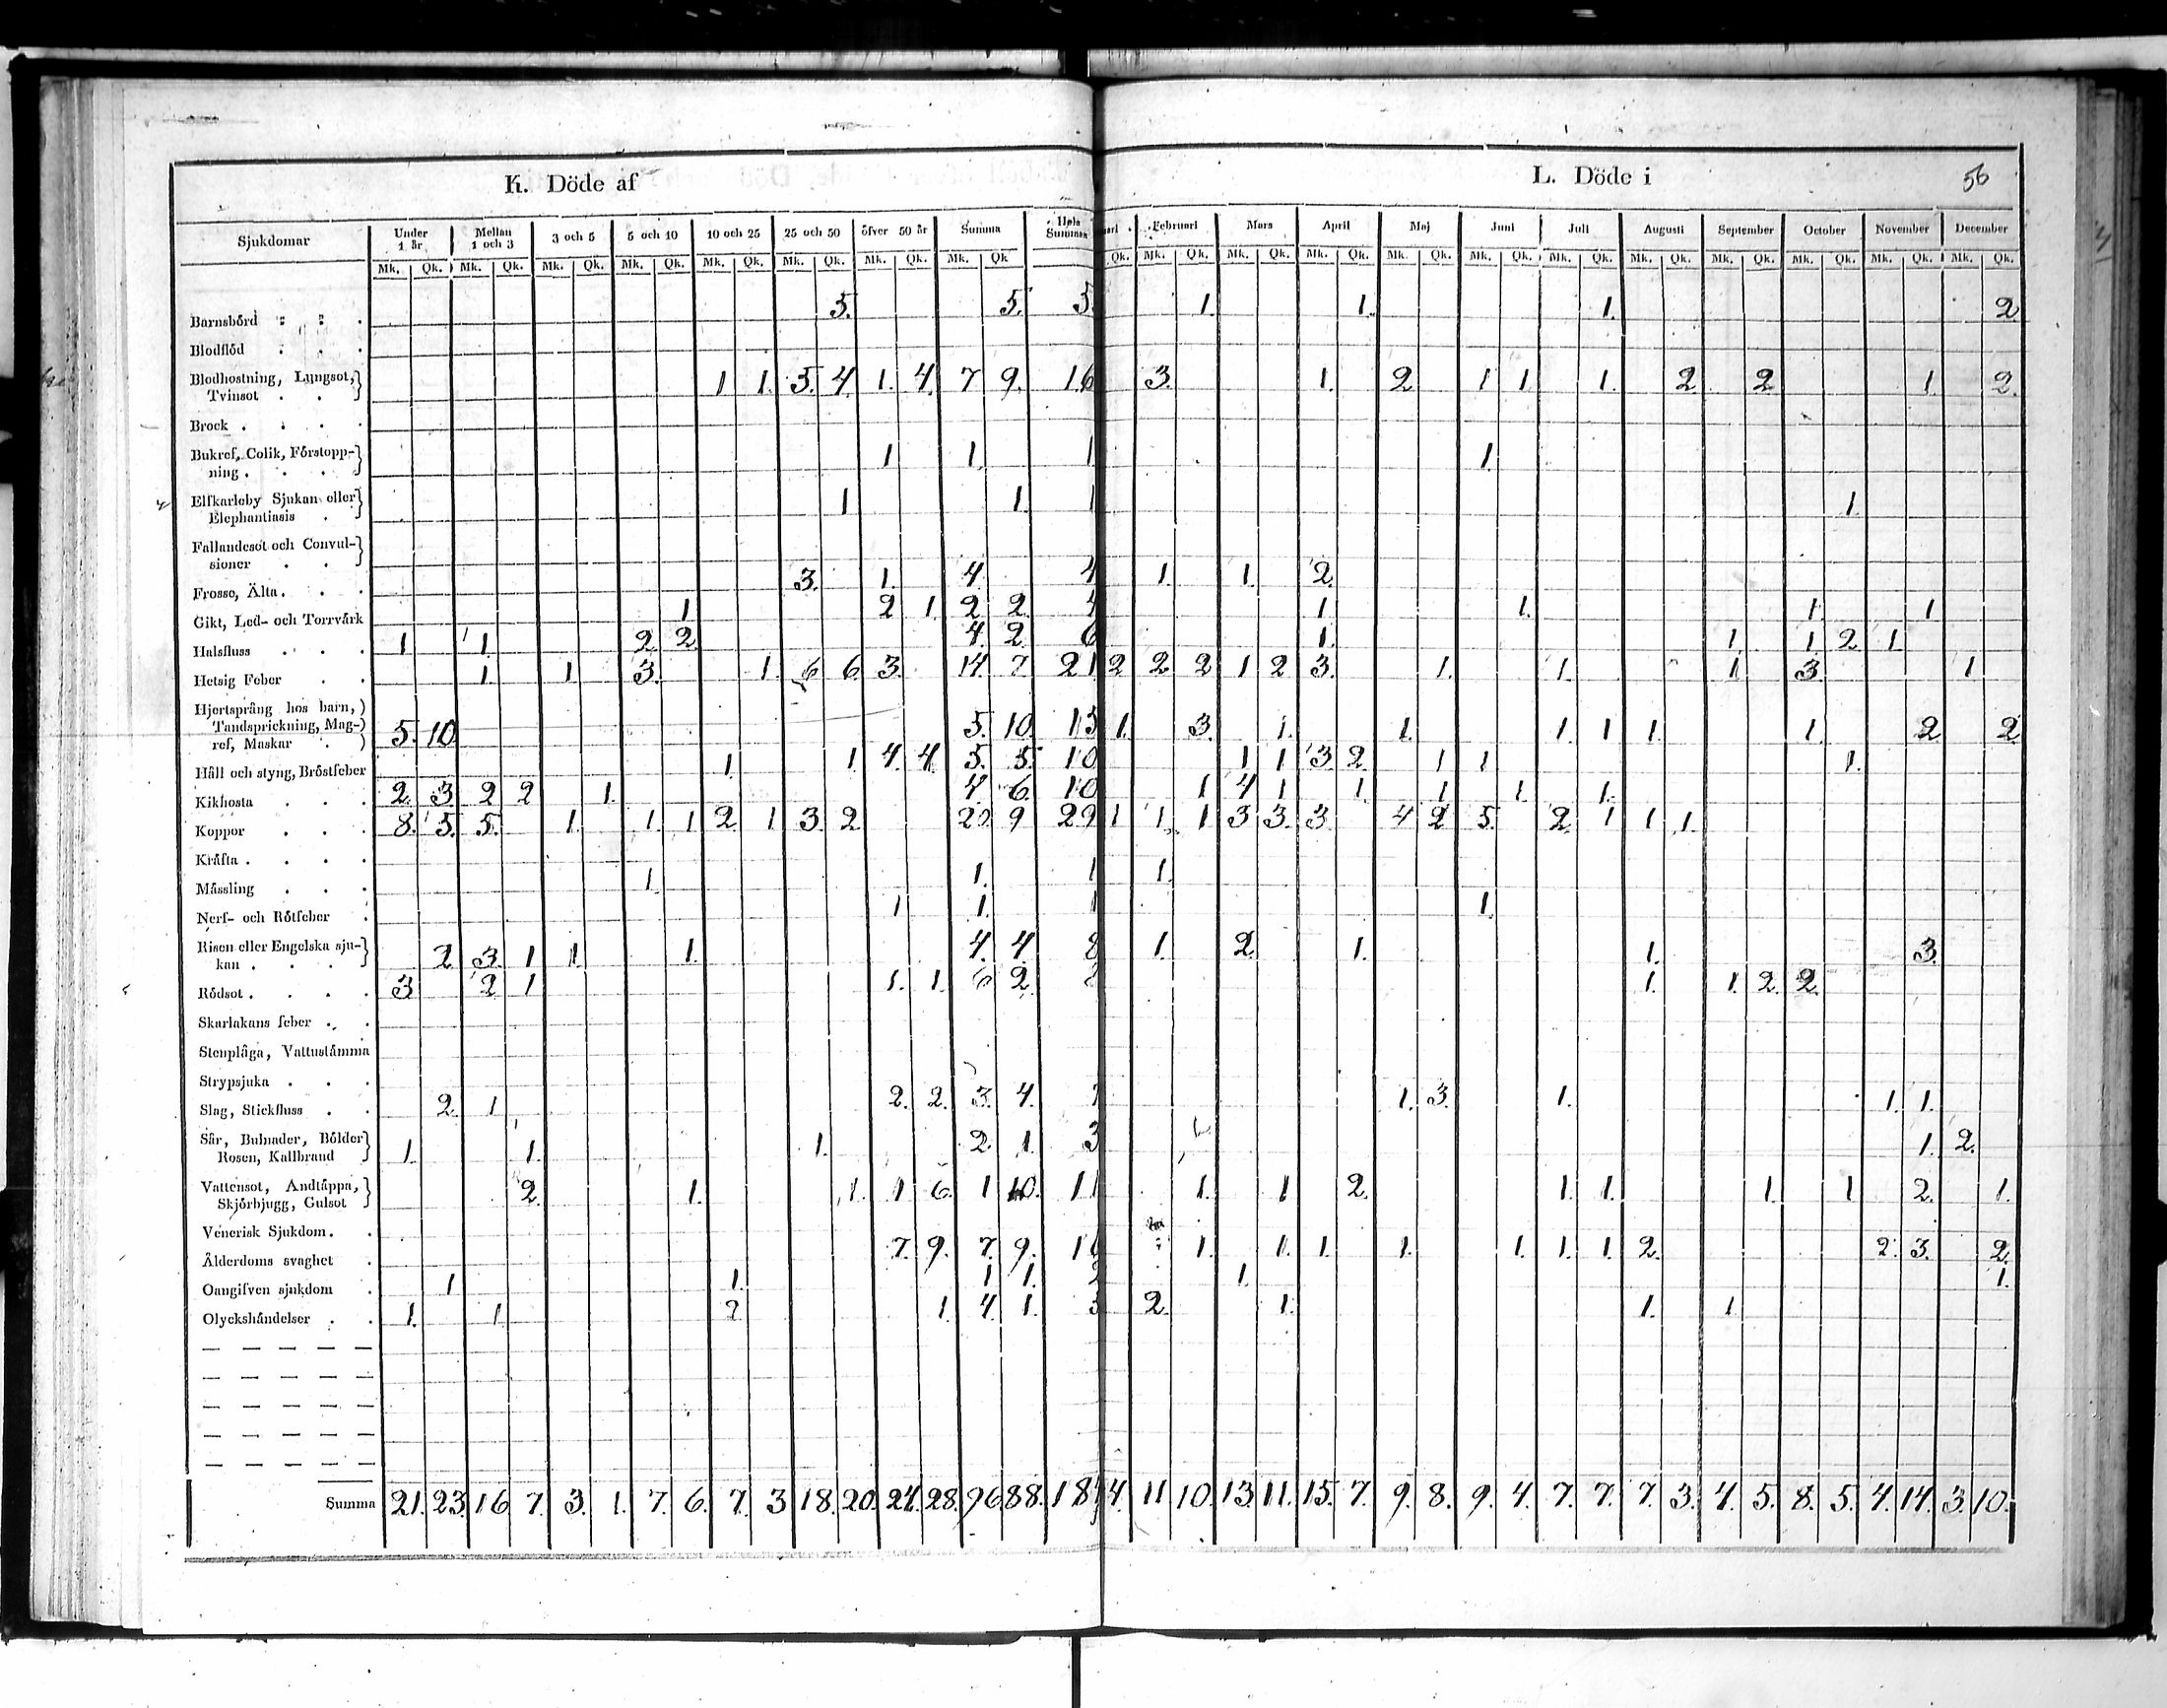 K. Döde af L. Döde i 56
Sjukdomar Under 1 år Mellan 1 och 3 3 och 5 5 och 10 10 och 25 25 och 50 öfver 50 år Summa Hela Summan Februari Mars April Maj Juni Juli Augusti September October November December
Mk. Qk. Mk. Qk. Mk. Qk. Mk. Qk. Mk. Qk. Mk. Qk. Mk. Qk. Mk. Qk Qk. Mk. Qk. Mk. Qk. Mk. Qk. Mk. Qk. Mk. Qk. Mk. Qk. Mk. Qk. Mk. Qk. Mk. Qk. Mk. Qk. Mk. Qk.
Barnsbörd 5. 5. 5. 1. 1. 1. 2
Blodflöd
Blodhostning, Lungsot, Tvinsot 1 1. 5. 4. 1. 4. 7 9. 16 3. 1. 2 1 1. 1. 2 2 1. 2.
Brock
Bukref, Colik, Förstoppning 1 1. 1 1.
Elfkarleby Sjukan eller Elephantiasis 1 1. 1 1.
Fallandesot och Convulsioner
Frosse, Älta 3. 1. 4. 4 1. 1. 2.
Gikt, Led- och Torrvärk 1 2 1. 2 2. 4 1 1. 1. 1
Halsfluss 1 1. 2 2. 4. 2. 6 1. 1 1 2 1.
Hetsig Feber 1. 1. 3. 1. 6 6. 3. 14. 7. 21 2 2 2 1 2 3. 1. 1. 1 3. 1
Hjertsprång hos barn, Tandsprickning, Magref, Maskar 5. 10. 5. 10. 15 1. 3. 1. 1. 1. 1 1. 1. 2 2
Håll och styng, Bröstfeber 1. 1. 4. 4. 5. 5. 10 1 1 3 2. 1 1 1.
Kikhosta 2. 3. 2 2 1. 4 6. 10 1 4 1 1. 1 1. 1.
Koppor 8. 5. 5. 1. 1. 1 2. 1 3. 2. 20 9 29 1 1. 1 3 3. 3. 4 2 5. 2. 1 1 1.
Kräfta
Mässling 1. 1. 1 1.
Nerf- och Rötfeber 1 1. 1 1.
Risen eller Engelska sjukan 2. 3. 1 1. 1. 4. 4. 8 1. 2. 1. 1. 3.
Rödsot 3 2 1 1. 1. 6 2. 8 1. 1. 2. 2.
Skarlakans feber
Stenplåga, Vattustämma
Strypsjuka
Slag, Stickfluss 2. 1 2. 2. 3. 4. 1. 3. 1. 1. 1.
Sår, Bulnader, Bölder Rosen, Kallbrand 1. 1. 1. 2 1. 3 1. 2.
Vattensot, Andtäppa, Skjörbjugg, Gulsot 2. 1. 1. 1 6. 1 10. 11 1. 1 2. 1. 1. 1. 1 2. 1.
Venerisk Sjukdom
Ålderdoms svaghet 7. 9. 7. 9. 1. 1. 1. 1. 1. 1. 1. 2. 2. 3. 2.
Oangifven sjukdom 1 1. 1 1. 2 1. 1.
Olyckshändelser 1. 1. 2 1. 4. 1. 2. 1. 1. 1.
Summa 21. 23. 16. 7. 3. 1. 7. 6. 7. 3 18. 20. 24. 28. 96 88. 184 4. 11 10. 13. 11. 15. 7. 9. 8. 9. 4. 7. 7. 7. 3. 4. 5. 8. 5. 4. 14. 3. 10.